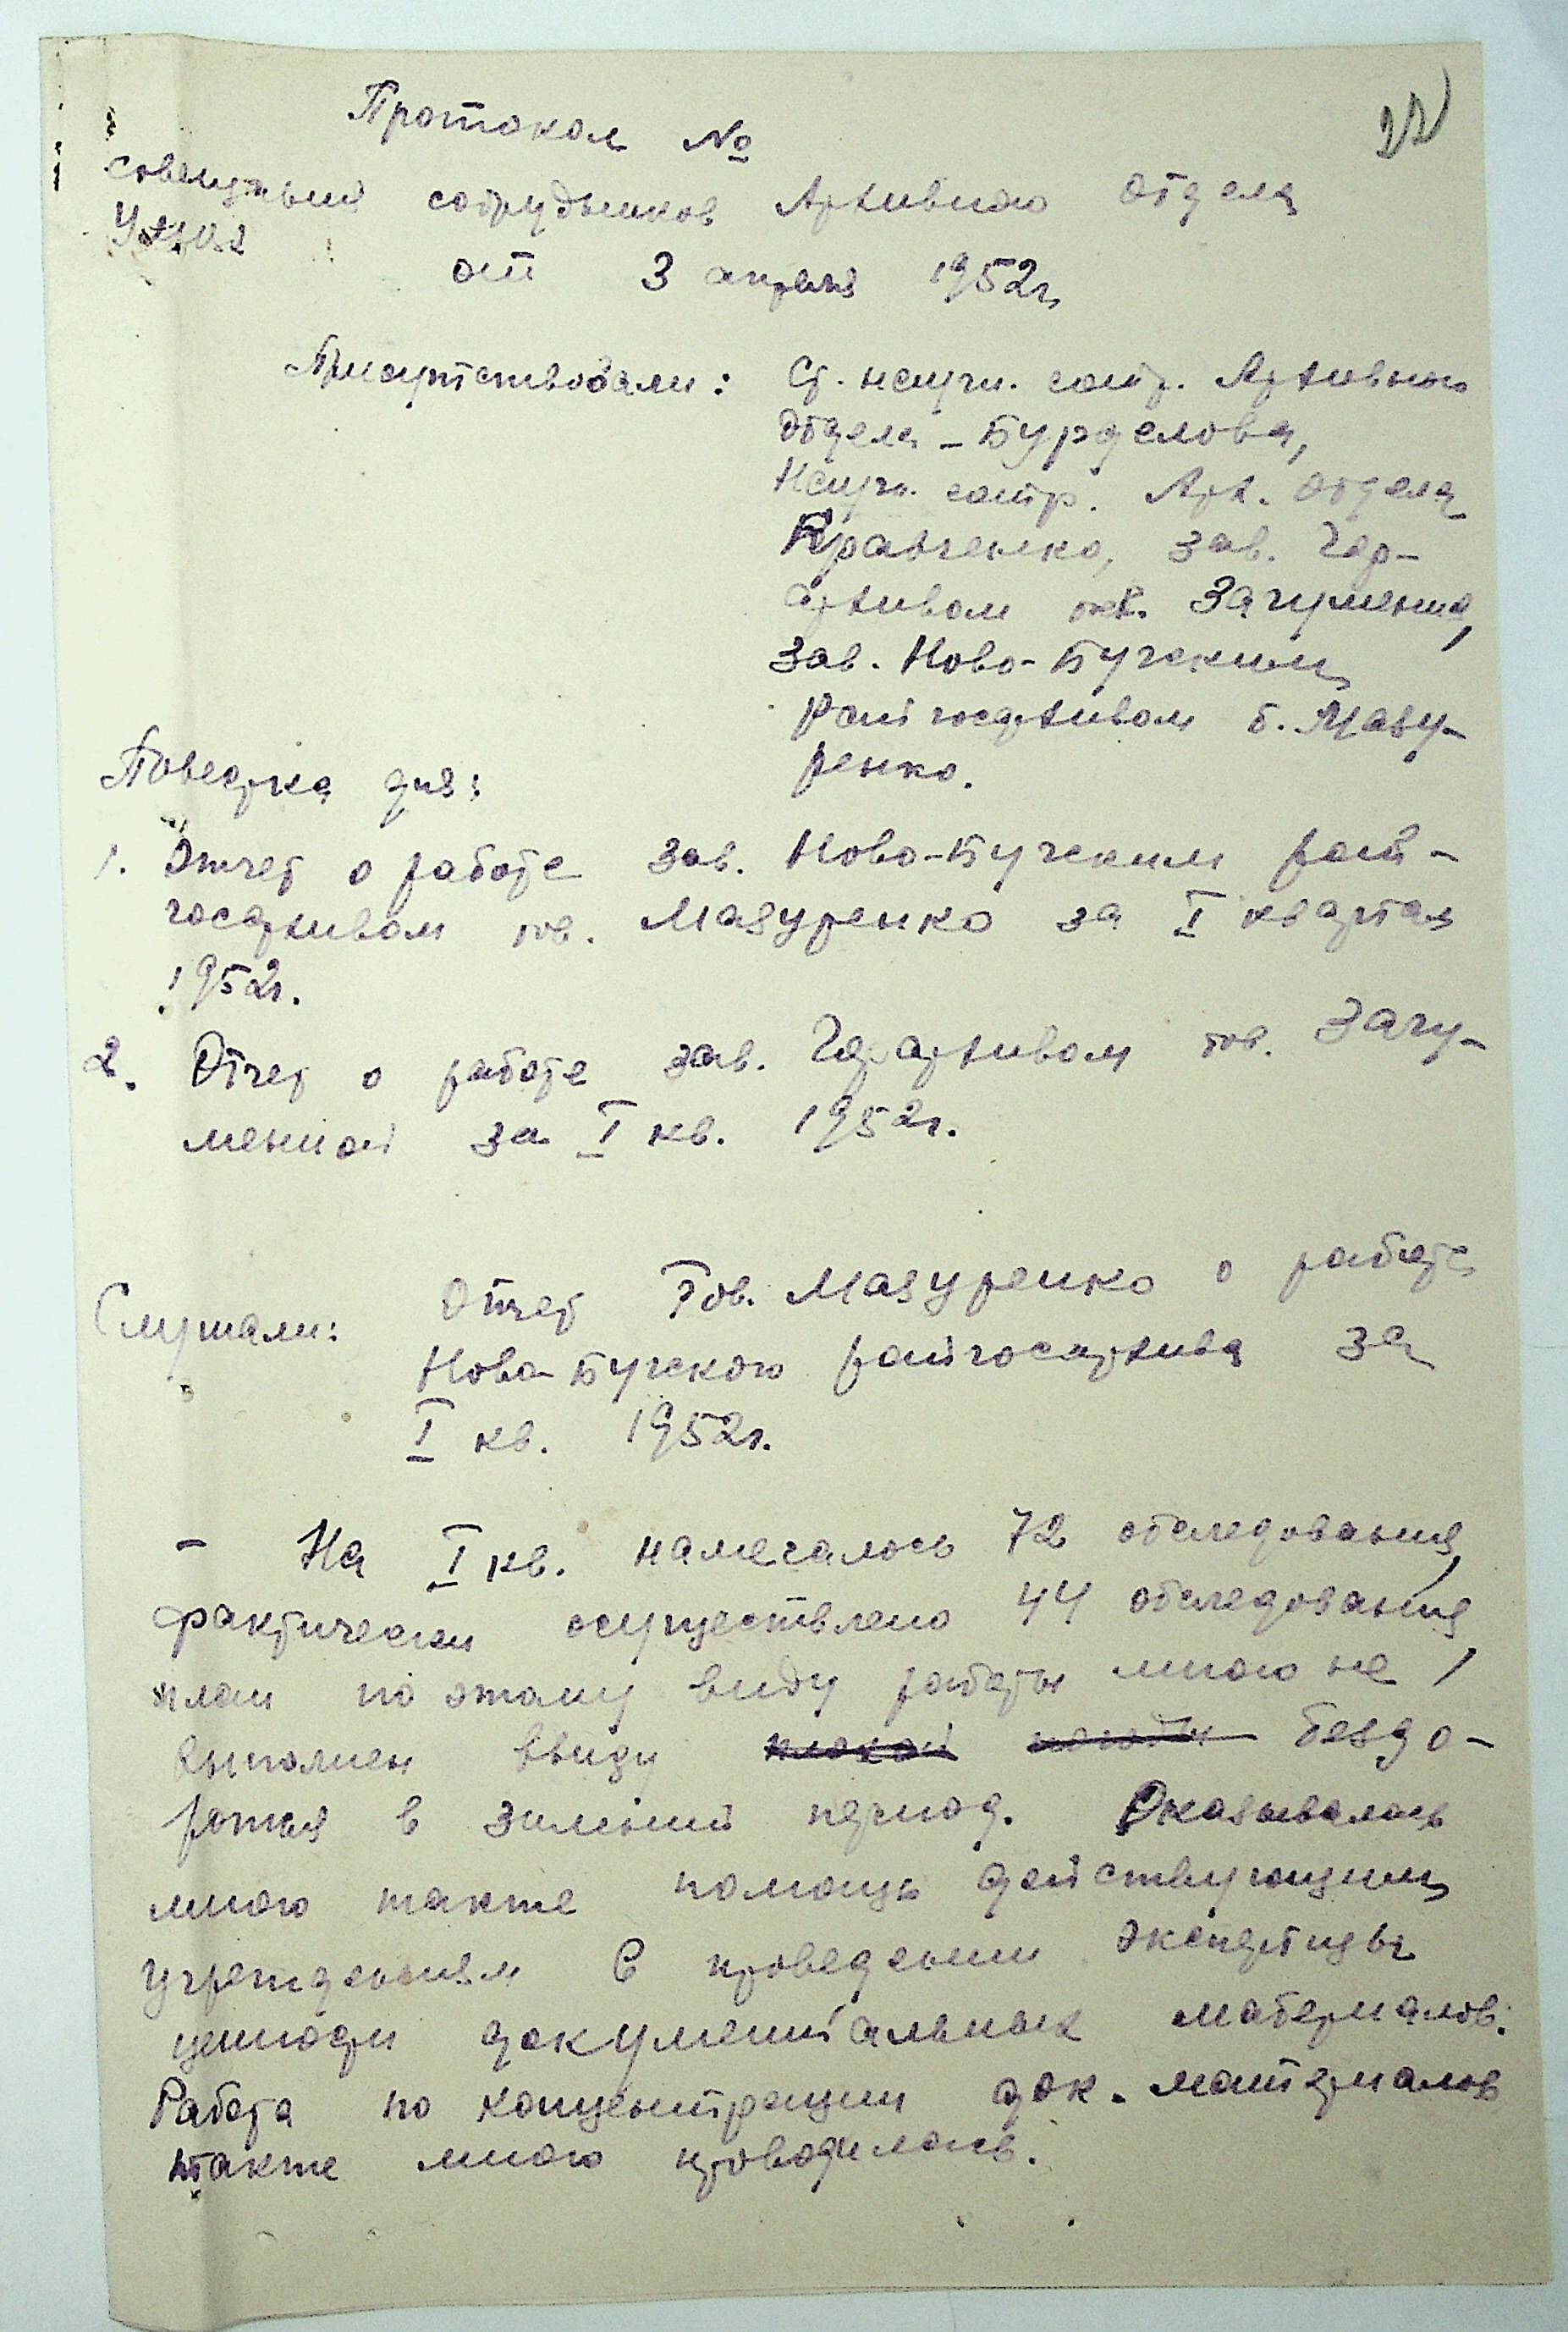 27
Протокол №
совещания сотрудников Архивного отдела
от 3 апреля 1952г.
Присутствовали: Ст. научн. сотр. Архивного
отдела - Бурделова,
Научн. сотр. Арх. отдела
Кравченко, зав. Гор-
архивом Загуменная,
зав. Ново-Бугским
райгосархивом т. Мазу-
ренко.
Повестка дня:
1. Отчет о работе зав. Ново-Бугским рай-
госархивом тов. Мазуренко за I квартал
1952г.
2. Отчет о работе зав. Горархивом тов. Загу-
менной за I кв. 1952г.
Слушали: Отчет Тов. Мазуренко о работе
Ново-Бугского райгосархива за
I кв. 1952г.
- На I кв. намечалось 72 обследования,
фактически осуществлено 44 обследования,
план по этому виду работы мною не
выполнен ввиду плохой погоды бездо-
рожья в зимний период. Оказывалась
мною также помощь действующим
учреждениям в проведении экспертизы
ценности документальных материалов.
Работа по концентрации док. материалов
также мною проводилась.